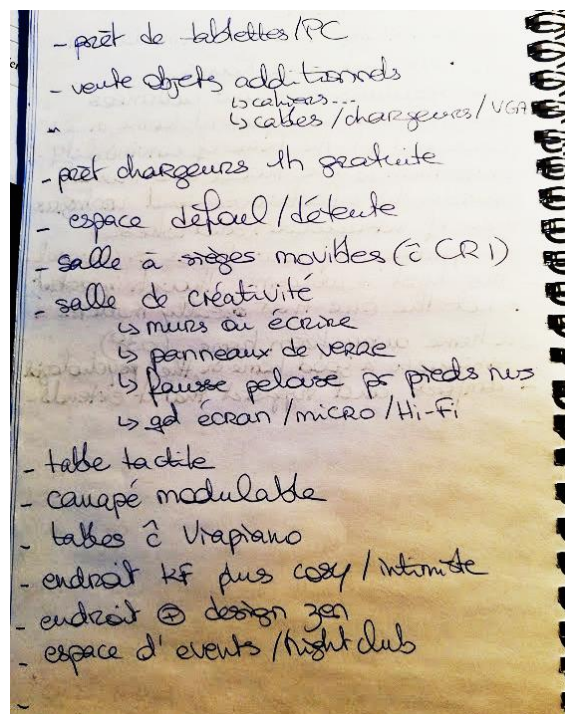 - prêt de tablettes/PC
- vente objets additionnels
↳ cahiers...
↳ cables/chargeurs/VGA
- prêt chargeurs 1h gratuite
- espace défoul/détente
- salle à sièges movibles (ĉ CRI)
- salle de créativité
↳ murs où écrire
↳ panneaux de verre
↳ fausse pelouse pr pieds nus
↳ gd écran/micro/Hi-Fi
- table tactile
- canapé modulable
- tables ĉ Vapiano
- endroit KF plus cosy/intimiste
- endroit ⊕ design zen
- espace d'events/night club